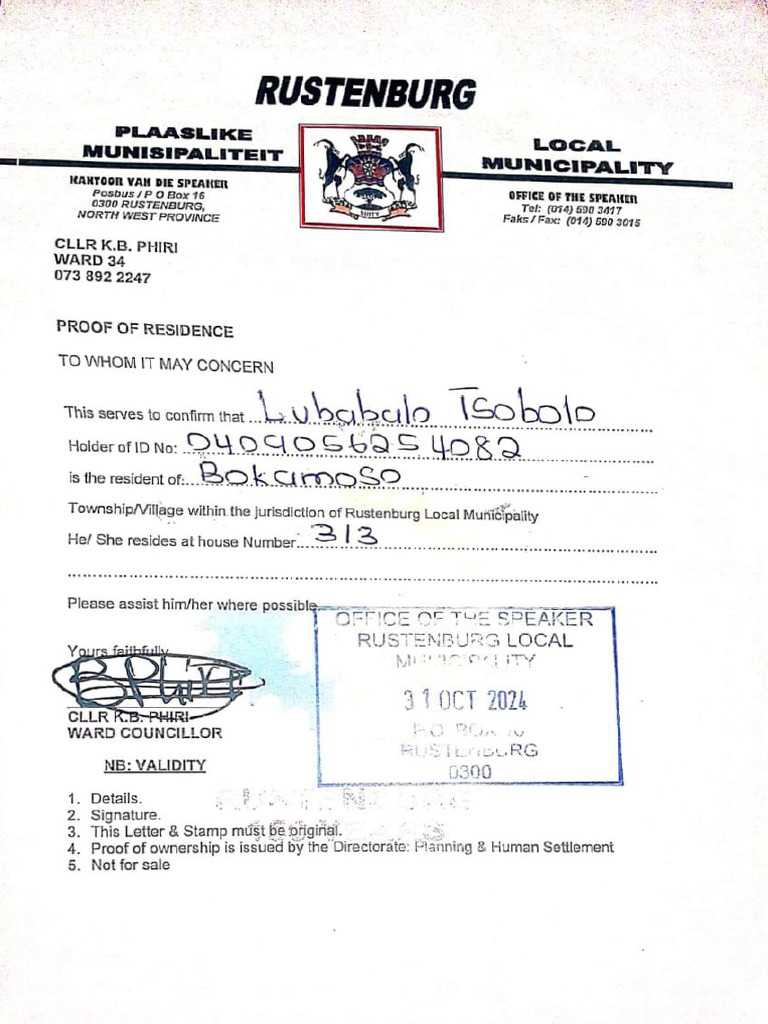 RUSTENBURG
PLAASLIKE
MUNISIPALITEIT
LOCAL
MUNICIPALITY
KANTOOR VAN DIE SPEAKER
Posbus / P O Box 16
0300 RUSTENBURG,
NORTH WEST PROVINCE
OFFICE OF THE SPEAKER
Tel: (014) 590 3417
Faks / Fax: (014) 590 3015
CLLR K.B. PHIRI
WARD 34
073 892 2247
PROOF OF RESIDENCE
TO WHOM IT MAY CONCERN
This serves to confirm that Lubabalo Tsobolo
Holder of ID No: 0409056254082
is the resident of: Bokamoso
Township/Village within the jurisdiction of Rustenburg Local Municipality
He/ She resides at house Number 313
Please assist him/her where possible
Yours faithfully
CLLR K.B. PHIRI
WARD COUNCILLOR
OFFICE OF THE SPEAKER
RUSTENBURG LOCAL
MUNICIPALITY
31 OCT 2024
P.O. BOX 16
RUSTENBURG
0300
NB: VALIDITY
1. Details.
2. Signature.
3. This Letter & Stamp must be original.
4. Proof of ownership is issued by the Directorate: Planning & Human Settlement
5. Not for sale